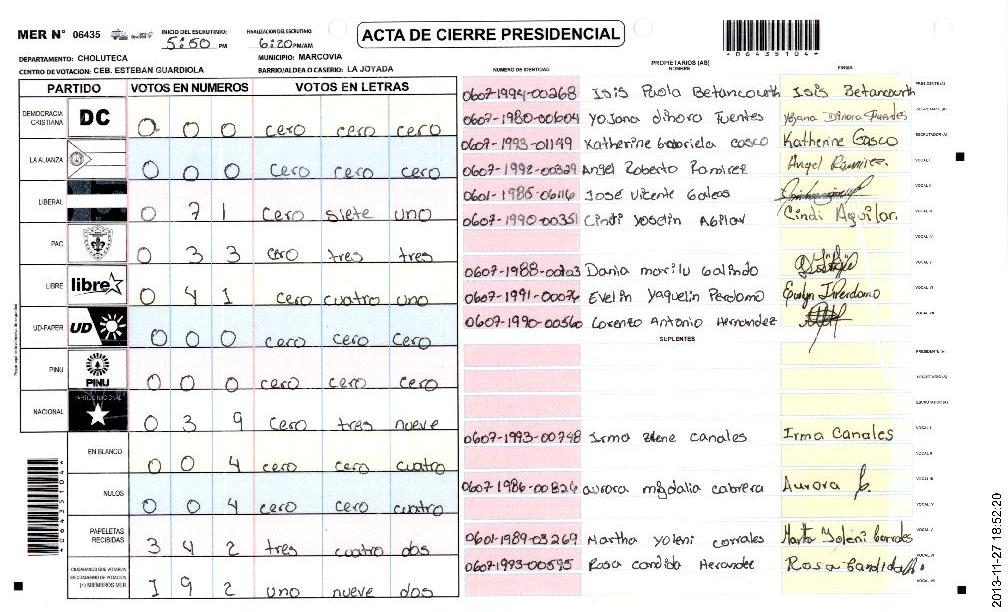 MER N° 06435
INICIO DEL ESCRUTINIO: 5:50 PM
FINALIZACION DEL ESCRUTINIO 6:20 PM/AM
ACTA DE CIERRE PRESIDENCIAL
*06435104*
DEPARTAMENTO: CHOLUTECA
MUNICIPIO: MARCOVIA
CENTRO DE VOTACION: CEB. ESTEBAN GUARDIOLA
BARRIO/ALDEA O CASERIO: LA JOYADA
PARTIDO VOTOS EN NUMEROS VOTOS EN LETRAS
DEMOCRACIA CRISTIANA DC 0 0 0 cero cero cero
LA ALIANZA 0 0 0 cero cero cero
LIBERAL 0 7 1 cero siete uno
PAC 0 3 3 cero tres tres
LIBRE libre 0 4 1 cero cuatro uno
UD-FAPER UD 0 0 0 cero cero cero
PINU PINU 0 0 0 cero cero cero
NACIONAL PARTIDO NACIONAL 0 3 9 cero tres nueve
EN BLANCO 0 0 4 cero cero cuatro
NULOS 0 0 4 cero cero cuatro
PAPELETAS RECIBIDAS 3 4 2 tres cuatro dos
CIUDADANOS QUE VOTARON EN CUADERNO DE VOTACION (+) MIEMBROS MER 1 9 2 uno nueve dos
PROPIETARIOS (AS)
NUMERO DE IDENTIDAD NOMBRE FIRMA
0607-1994-00268 Isis Paola Betancourth Isis Betancourth PRESIDENTE(A)
0607-1980-00604 Yojana dinora Fuentes Yojana Dinora Fuentes SECRETARIO(A)
0607-1993-01199 Katherine Gabriela cosco Katherine Gosco ESCRUTADOR(A)
0607-1992-00329 Angel Roberto Ramirez Angel Ramirez VOCAL I
0601-1985-06116 José Vicente Galeas VOCAL II
0607-1990-00351 Cindi Yoselin Agilar Cindi Aguilar. VOCAL III
VOCAL IV
Dania marilu Galindo VOCAL V
0607-1991-00076 Evelin Yaquelin Perdomo Evelyn Perdomo VOCAL VI
0607-1990-00560 Lorenzo Antonio Hernandez VOCAL VII
SUPLENTES
PRESIDENTE(A)
SECRETARIO(A)
ESCRUTADOR(A)
0607-1993-00748 Irma Canales Irma Canales VOCAL I
VOCAL II
0607-1986-00826 aurora migdalia cabrera Aurora VOCAL III
VOCAL IV
0601-1989-03269 Martha Yoleni corrales Martha Yoleni Corrales VOCAL V
0607-1993-00595 Rosa candida Hernandez Rosa Candida VOCAL VI
VOCAL VII
2013-11-27 18:52:20